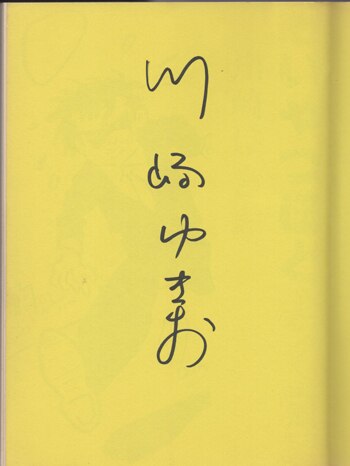 川崎ゆきお